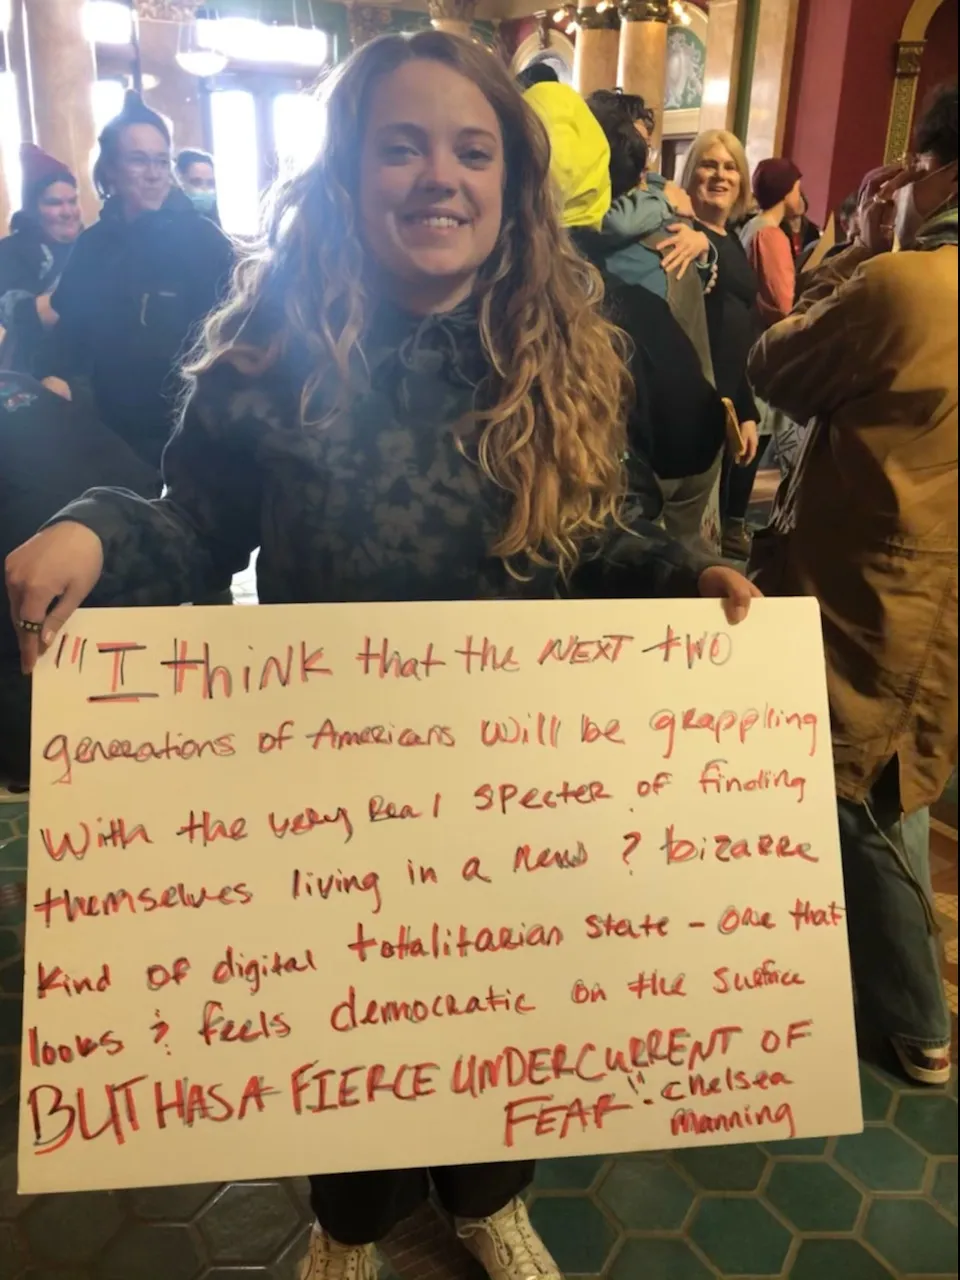 "I think that the NEXT two
generations of Americans will be grappling
with the very real specter of finding
themselves living in a new & bizarre
kind of digital totalitarian state - one that
looks & feels democratic on the surface
BUT HAS A FIERCE UNDERCURRENT OF
FEAR" - Chelsea
Manning